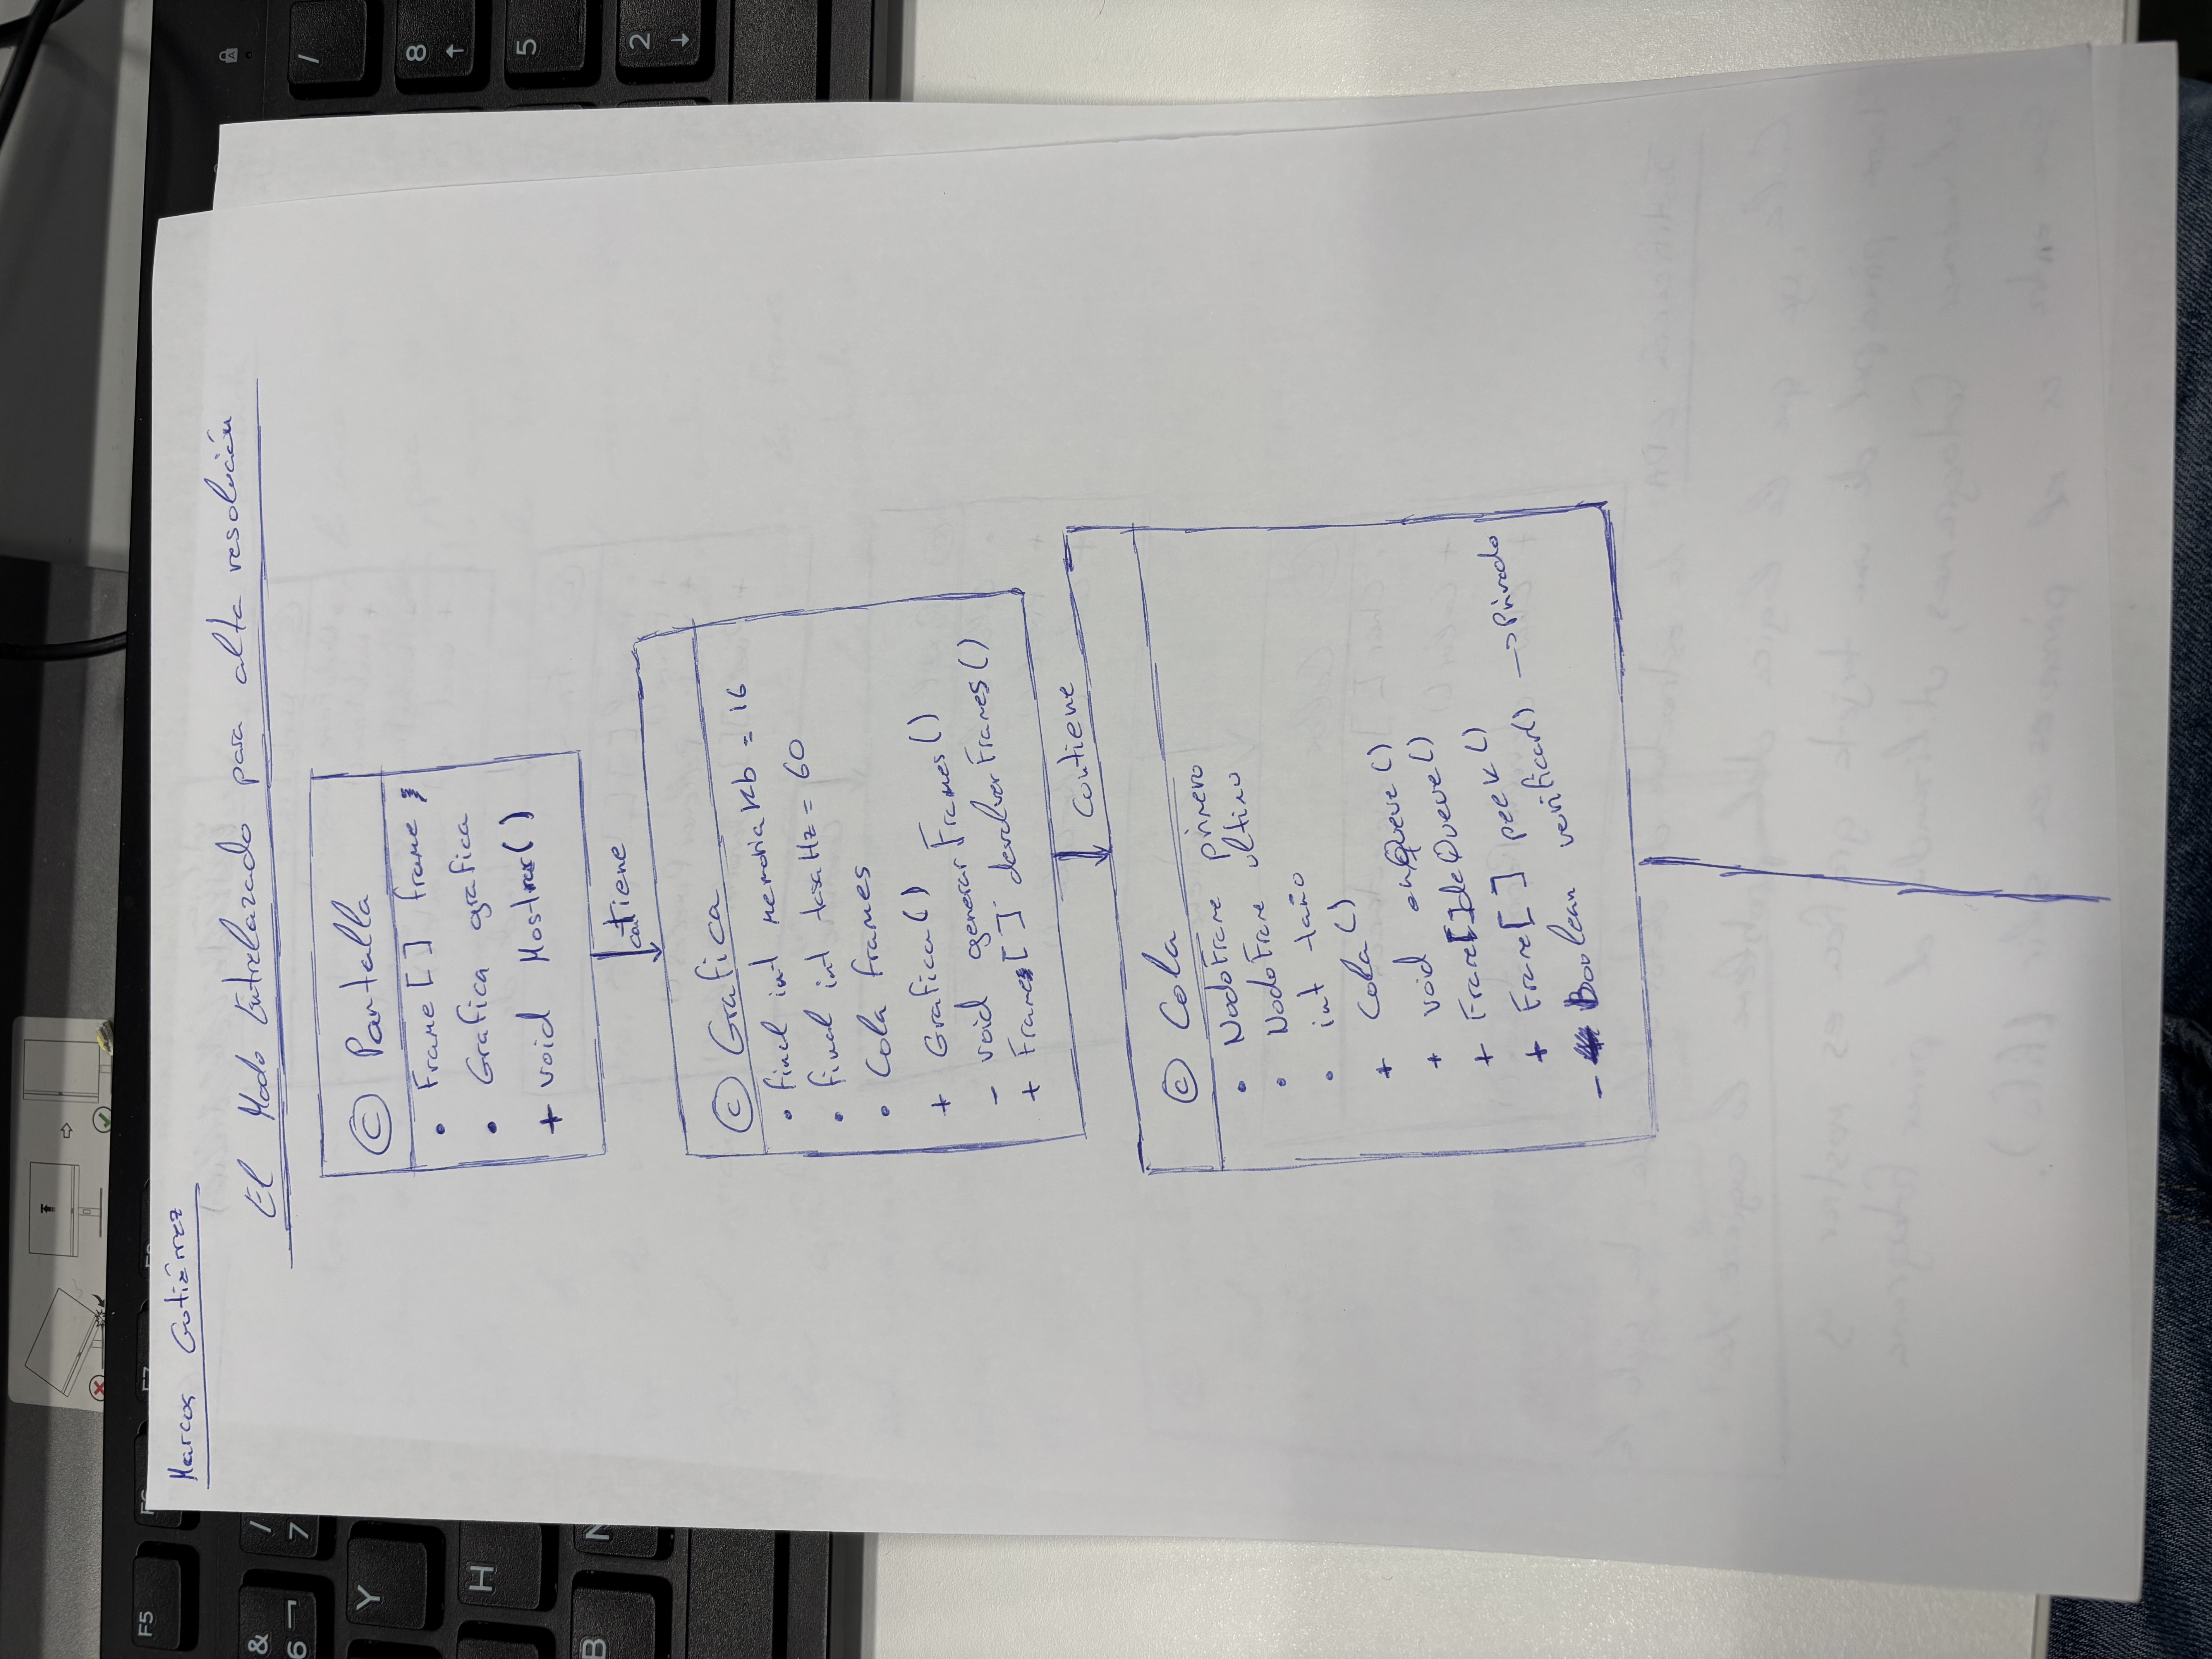 F5
F6
F7
F8
&
6 ¬
/
7
Y
H
B
N
/
8
↑
5
2
↓
A
Marcos Gutiérrez
El Modo Entrelazado para alta resolución
© Pantalla
• Frame [ ] frame
• Grafica grafica
+ void Mostrar( )
contiene
© Grafica
• final int memoria Kb = 16
• final int tasaHz = 60
• Cola frames
+ Grafica( )
- void generarFrames( )
+ Frame[ ] devolverFrames( )
Contiene
© Cola
• NodoFrame primero
• NodoFrame ultimo
• int taño
+ Cola( )
+ void enQueue( )
+ Frame[ ] deQueue( )
+ Frame[ ] peek( )
- Boolean verificar( ) → Privado